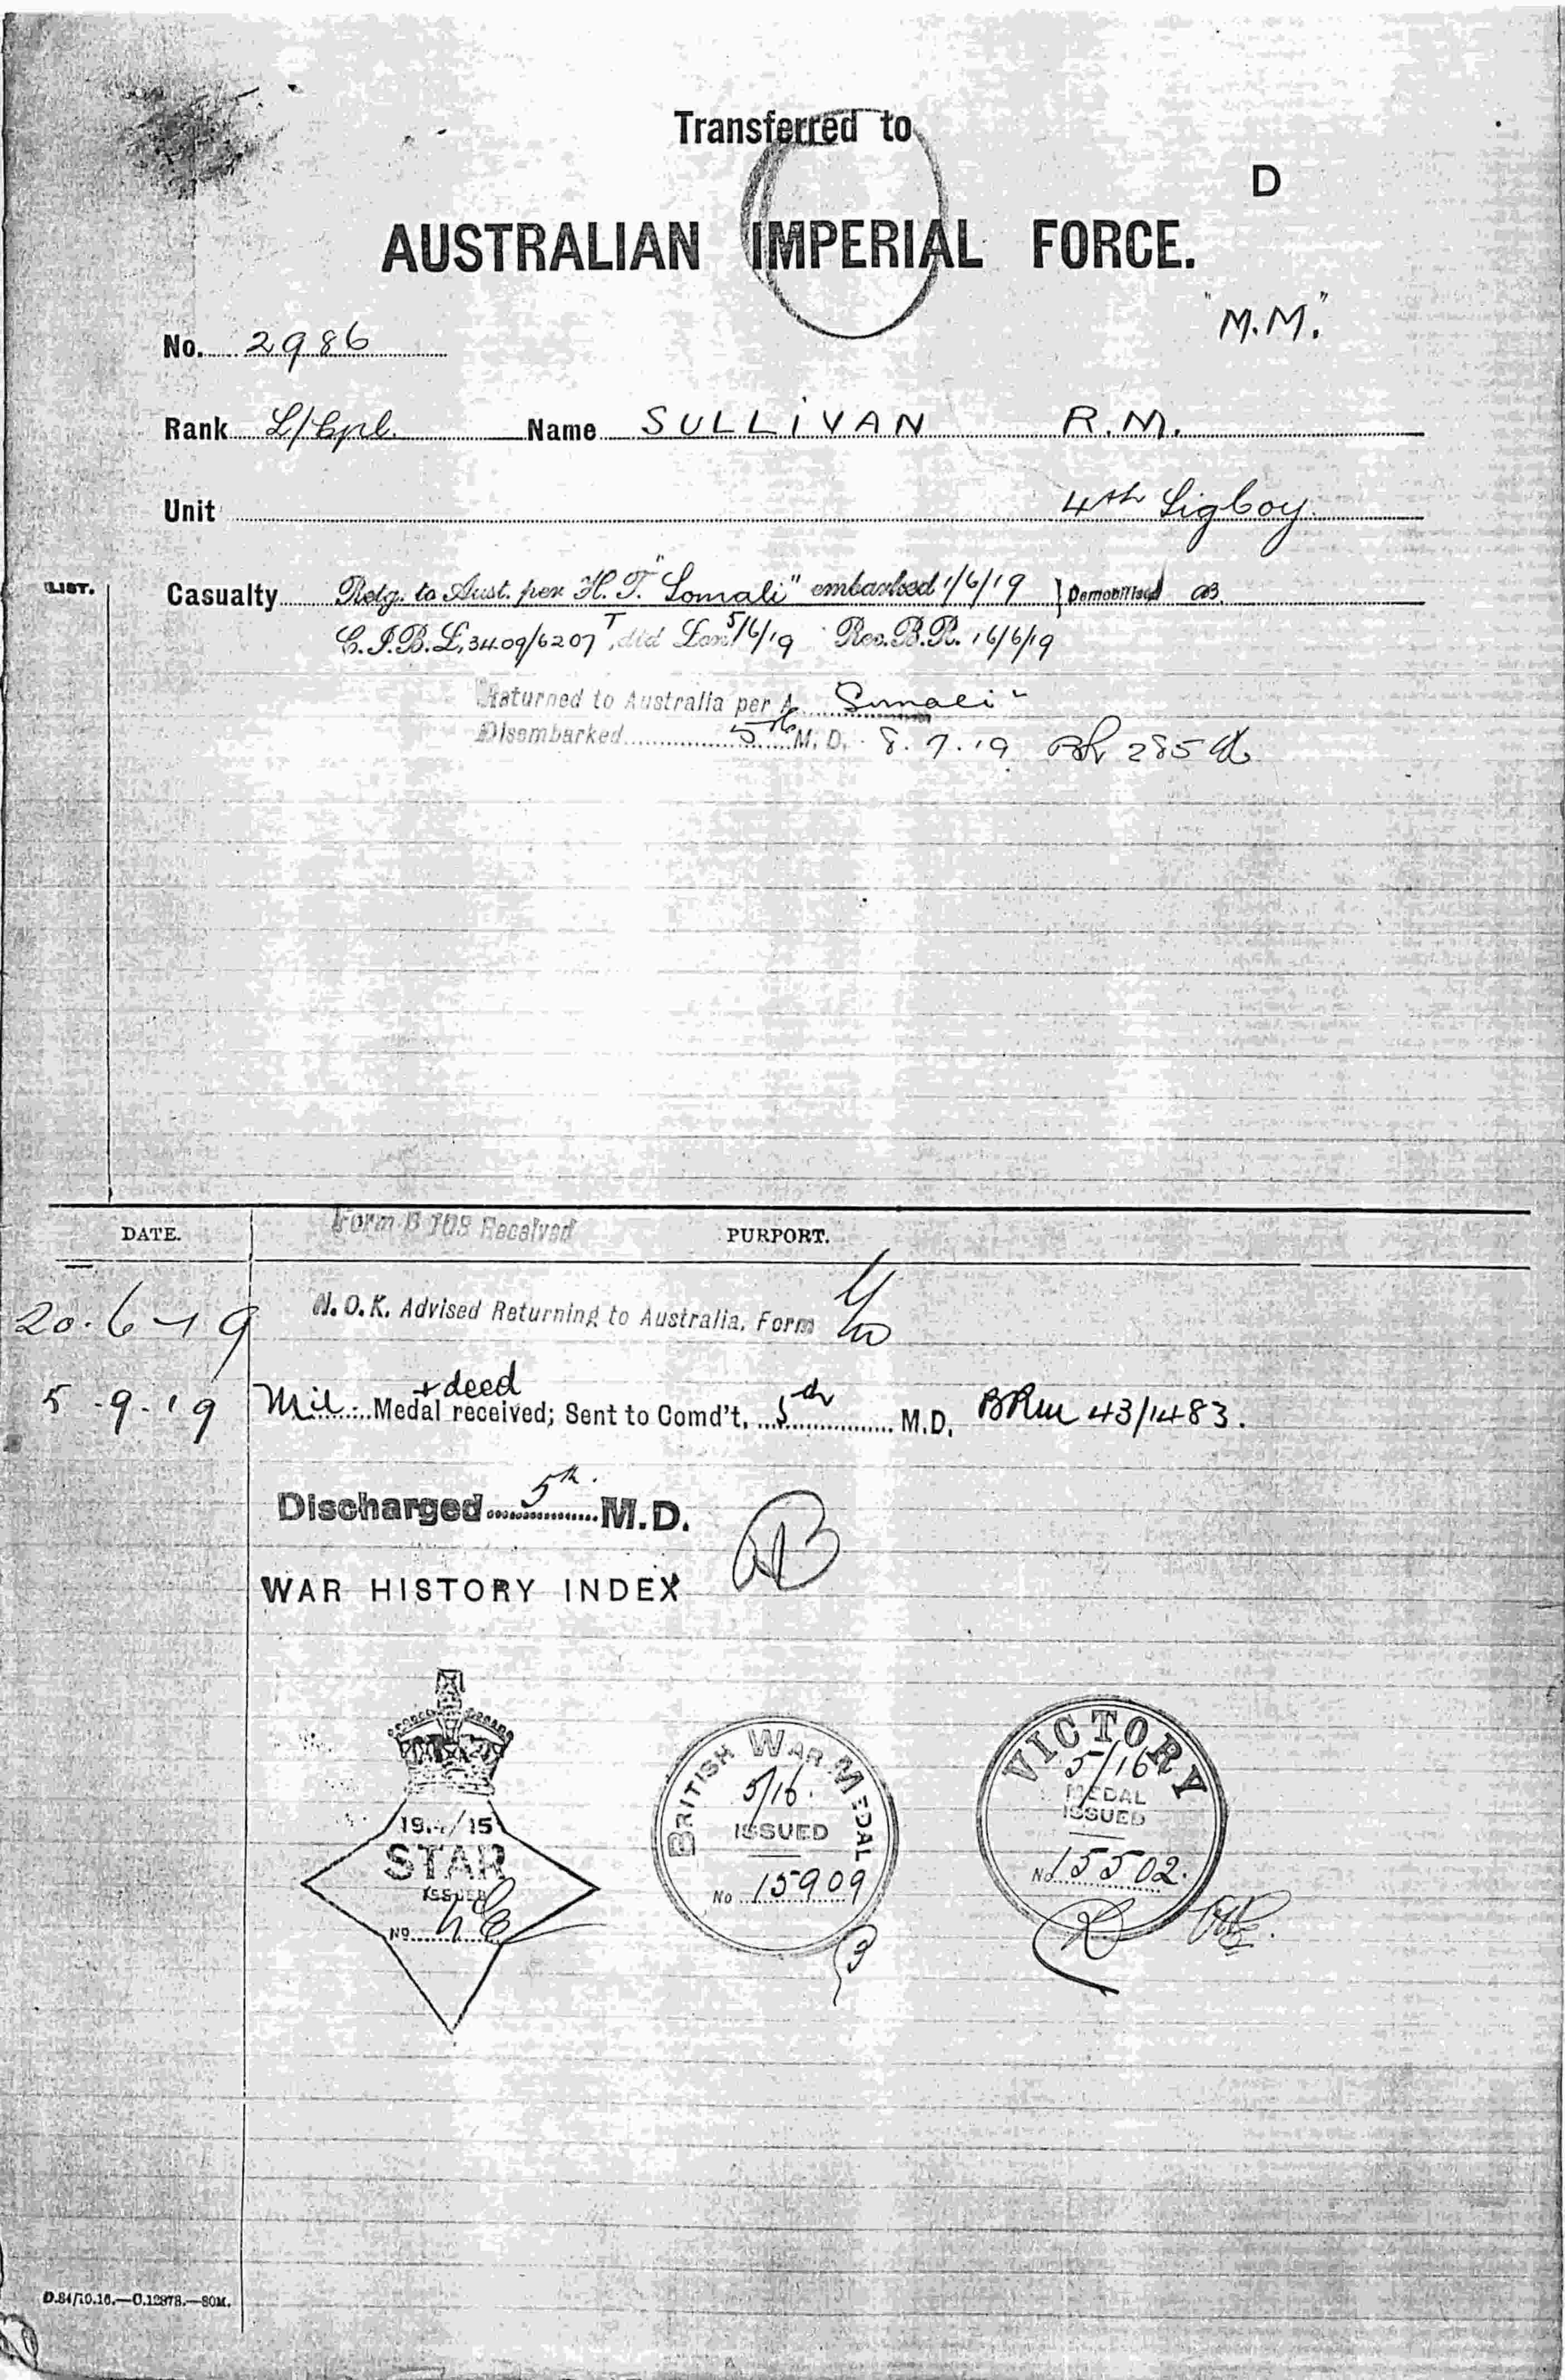 Transferred to
D
AUSTRALIAN IMPERIAL FORCE.
"M.M."
No. 2986
Rank L/Cpl. Name SULLIVAN R.M.
Unit 4th Sig Coy.
LIST. Casualty Retg. to Aust. per H.T. "Somali" embarked 1/6/19 } Demobilised
C.I.B.L. 3409/6207 T, did Lon. 5/6/19 Rec. B.R. 16/6/19
Returned to Australia per "Somali"
Disembarked 5th M.D. 8.7.19 285
DATE. Form B 103 Received PURPORT.
20.6-19 N.O.K. Advised Returning to Australia, Form
5.9.19 Mil. Medal + deed received; Sent to Comd't, 5th M.D. BRM 43/1483.
Discharged 5th M.D.
WAR HISTORY INDEX
1914/15
STAR
ISSUED
NO
BRITISH WAR MEDAL
5/16.
ISSUED
No 15909
VICTORY
5/16
MEDAL
ISSUED
No 15502.
D.84/10.16.—C.12878.—80M.